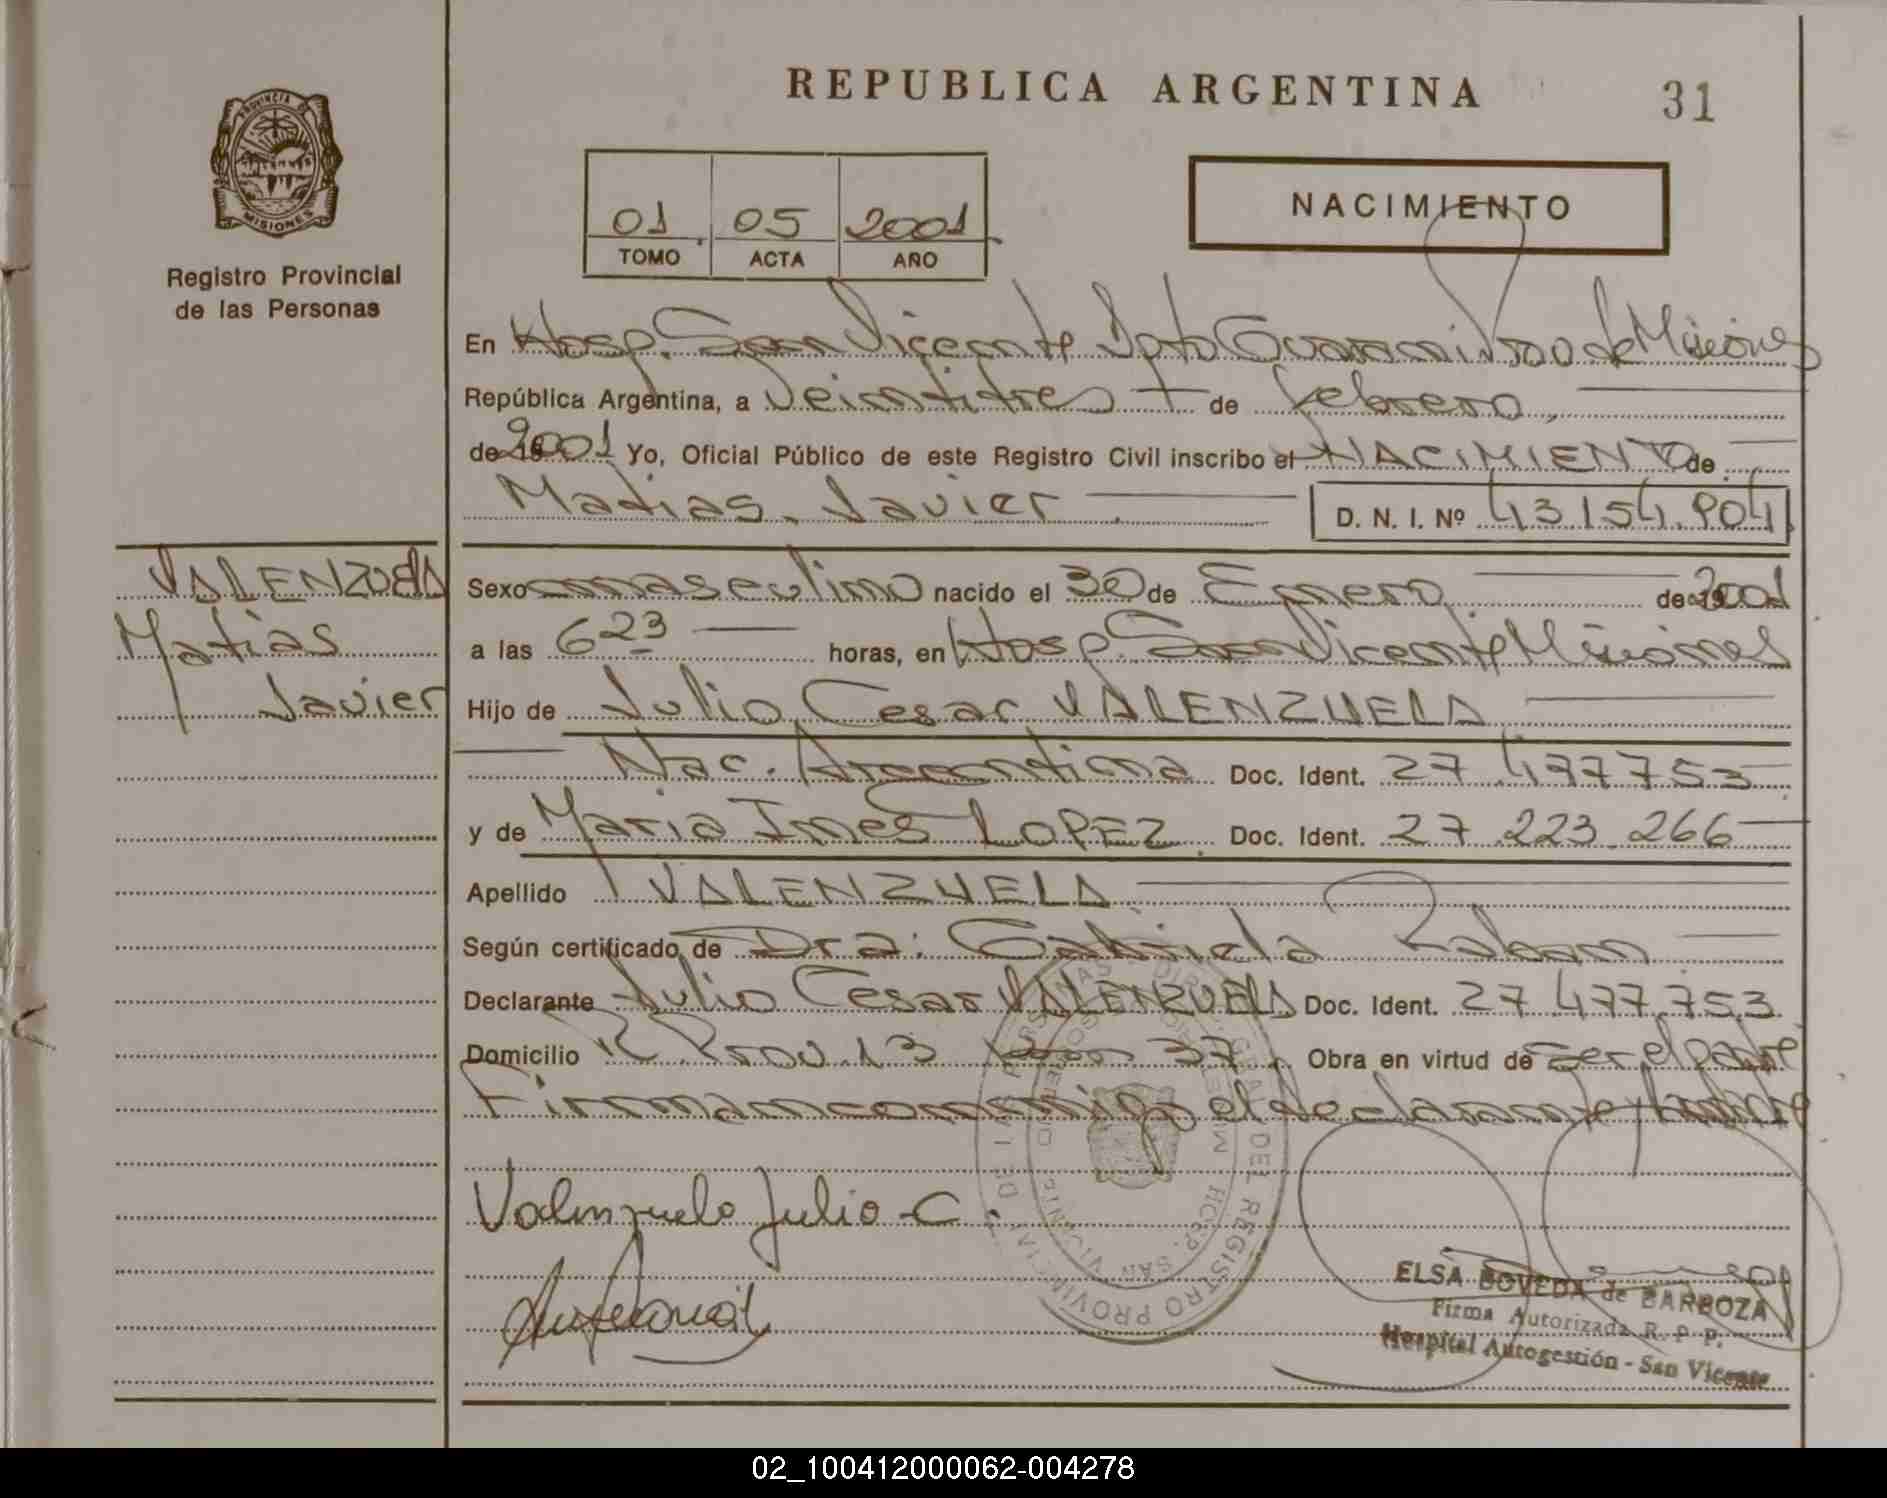 REPUBLICA ARGENTINA
31
PROVINCIA DE
MISIONES
Registro Provincial
de las Personas
01 05 2001
TOMO ACTA AÑO
NACIMIENTO
En Hosp. San Vicente Dpto Guarani Prov de Misiones
República Argentina, a Veintitres de febrero
de 2001 Yo, Oficial Público de este Registro Civil inscribo el NACIMIENTO de
Matias Javier D. N. I. Nº 43 154 904
VALENZUELA
Matias
Javier
Sexo masculino nacido el 30 de Enero de 2001
a las 6 23 horas, en Hosp. San Vicente Misiones
Hijo de Julio Cesar VALENZUELA
Nac. Argentina Doc. Ident. 27 477 753
y de Maria Ines LOPEZ Doc. Ident. 27 223 266
Apellido VALENZUELA
Según certificado de Dra: Gabriela
Declarante Julio Cesar VALENZUELA Doc. Ident. 27 477 753
Domicilio R. Prov. 13 Km 37 Obra en virtud de ser el padre
Firman conmigo el declarante y
Valenzuela Julio C.
ELSA BOVEDA de BARBOZA
Firma Autorizada R. P. P.
Hospital Autogestión - San Vicente
02_100412000062-004278